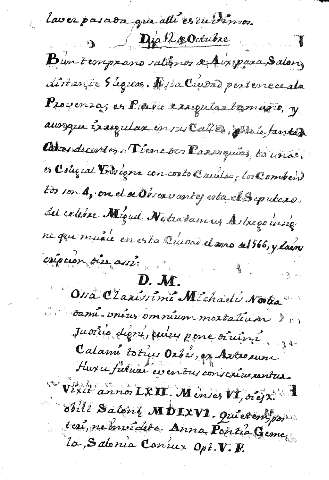 la vez pasada, que alli estubimos.
Dia 12 de Octubre
Bien temprano salimos de Aix para Salon,
distante 5 leguas. Esta Ciudad pertenece a la
Provenza, es Plaza irregular la mayor, y
aunque irregular en sus Calles,
Tiene dos Parroquias, la una
es Colegial Insigne con corto Cavildo; los Combent
tos son 4, en el de Observantes esta el Sepulcro
del celebre Miguel Nostradamus Astrologo insig
ne que murió en esta Ciudad el año de 1566, y la ins
cripcion dice assi:
D. M.
Ossa Clarissimi Michaelis Nostra
dami unius omnium mortalium
judicio digni, cuius pene divini
Calami totius Orbis, ex Astrorum
fluxu futuri eventus conscriberentur
Vixit annos LXII. Menses VI, dies X.
obiit Salone MDLXVI. Quietem pos
teri, ne invidete. Anna Pontia Geme
la, Salonia Coniux Opt. V. F.